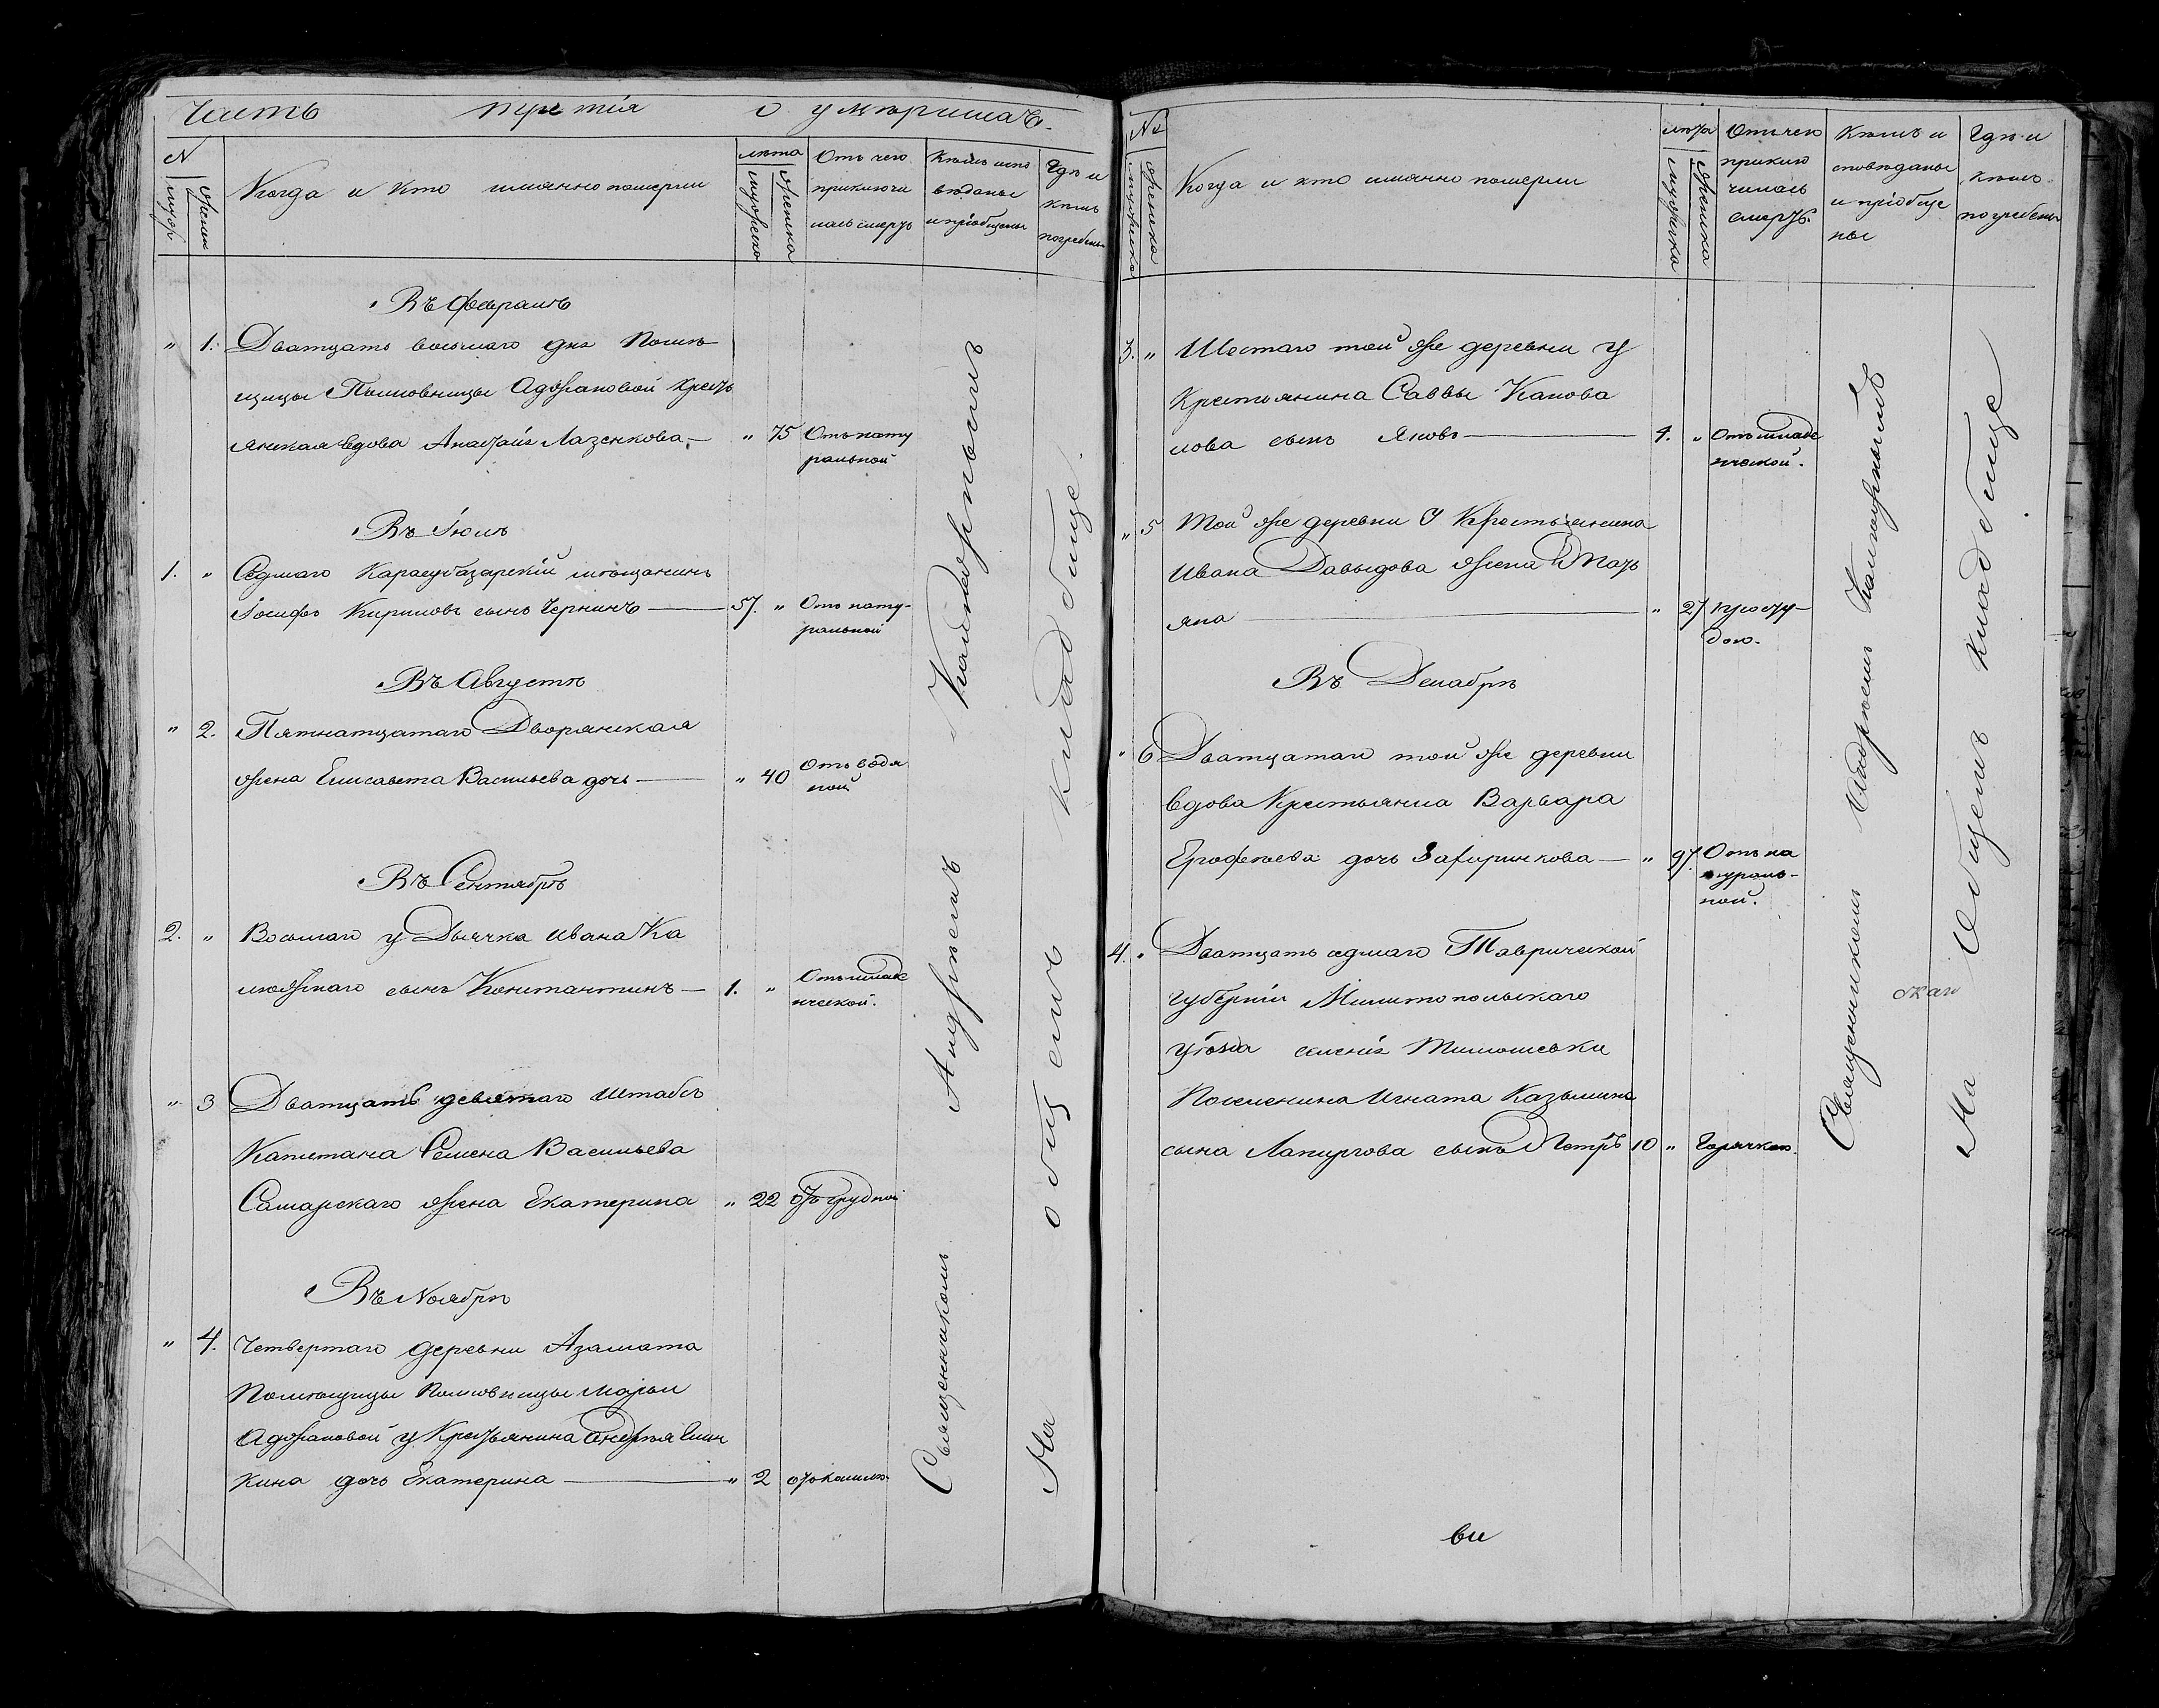 Часть третія о умершихъ.
N
мужес
женск
Когда и кто имянно померли
лѣта
мужеско
женско
Отъ чего
приключи
лась смерть
Кѣмъ испо
вѣданы
и пріобщены
Гдѣ и
кѣмъ
погребены
Въ Февралѣ
" 1. Дватцать восьмаго дня Помѣ
щицы Полковницы Аджановой кресть
янская вдова Анастасія Лазенкова — " 75 Отъ нату
ральной
Въ Іюлѣ
1. " Седмаго Карасубазарскій мѣщанинъ
Іосифъ Кириловъ сынъ Чернинъ — 57. " Отъ нату-
ральной
Въ Августѣ
" 2. Пятнатцатаго Дворянская
жена Елисавета Васильева дочь — " 40 Отъ водя
ной
Въ Сентябрѣ
2. " Восьмаго у Дьячка Ивана Ка
сынъ Константинъ — 1. " Отъ младе
нческой.
" 3 Дватцать девятаго Штабсъ
Капитана Семена Васильева
Самарскаго жена Екатерина " 22 отъ грудной
Въ Ноябрѣ
" 4. Четвертаго деревни Азамата
Помѣщицы Полковницы Марьи
Аджановой у Крестьянина Андрея
кина дочь Екатерина — " 2 отъ кашлю
Священникомъ Андреемъ
На общемъ кладбище.
№
мужеска
женска
Когда и кто имянно померли
лѣта
мужеска
женска
Отъ чего
приклю
чилась
смерть.
Кѣмъ и
сповѣданы
и пріобще
ны
Гдѣ и
кѣмъ
погребены
3. " Шестаго той же деревни у
Крестьянина Саввы Канова
лова сынъ Яковъ — 4. " Отъ младе
нческой.
" 5 Той же деревни у Крестьянина
Ивана Давыдова жена Тать
яна — " 27 просту-
дою.
Въ Декабрѣ
" 6 Дватцатаго той же деревни
вдова Крестьянка Варвара
Ерофеева дочь — " 97 Отъ на
тураль-
ной.
4. " Дватцать седмаго Таврической
Губерніи Милитопольскаго
уѣзда селенія Тимошевки
Поселенина Игната Казьмина
сына сынъ Петръ 10 " Горячкою.
Священникомъ Андреемъ
На Общемъ кладбище
вы